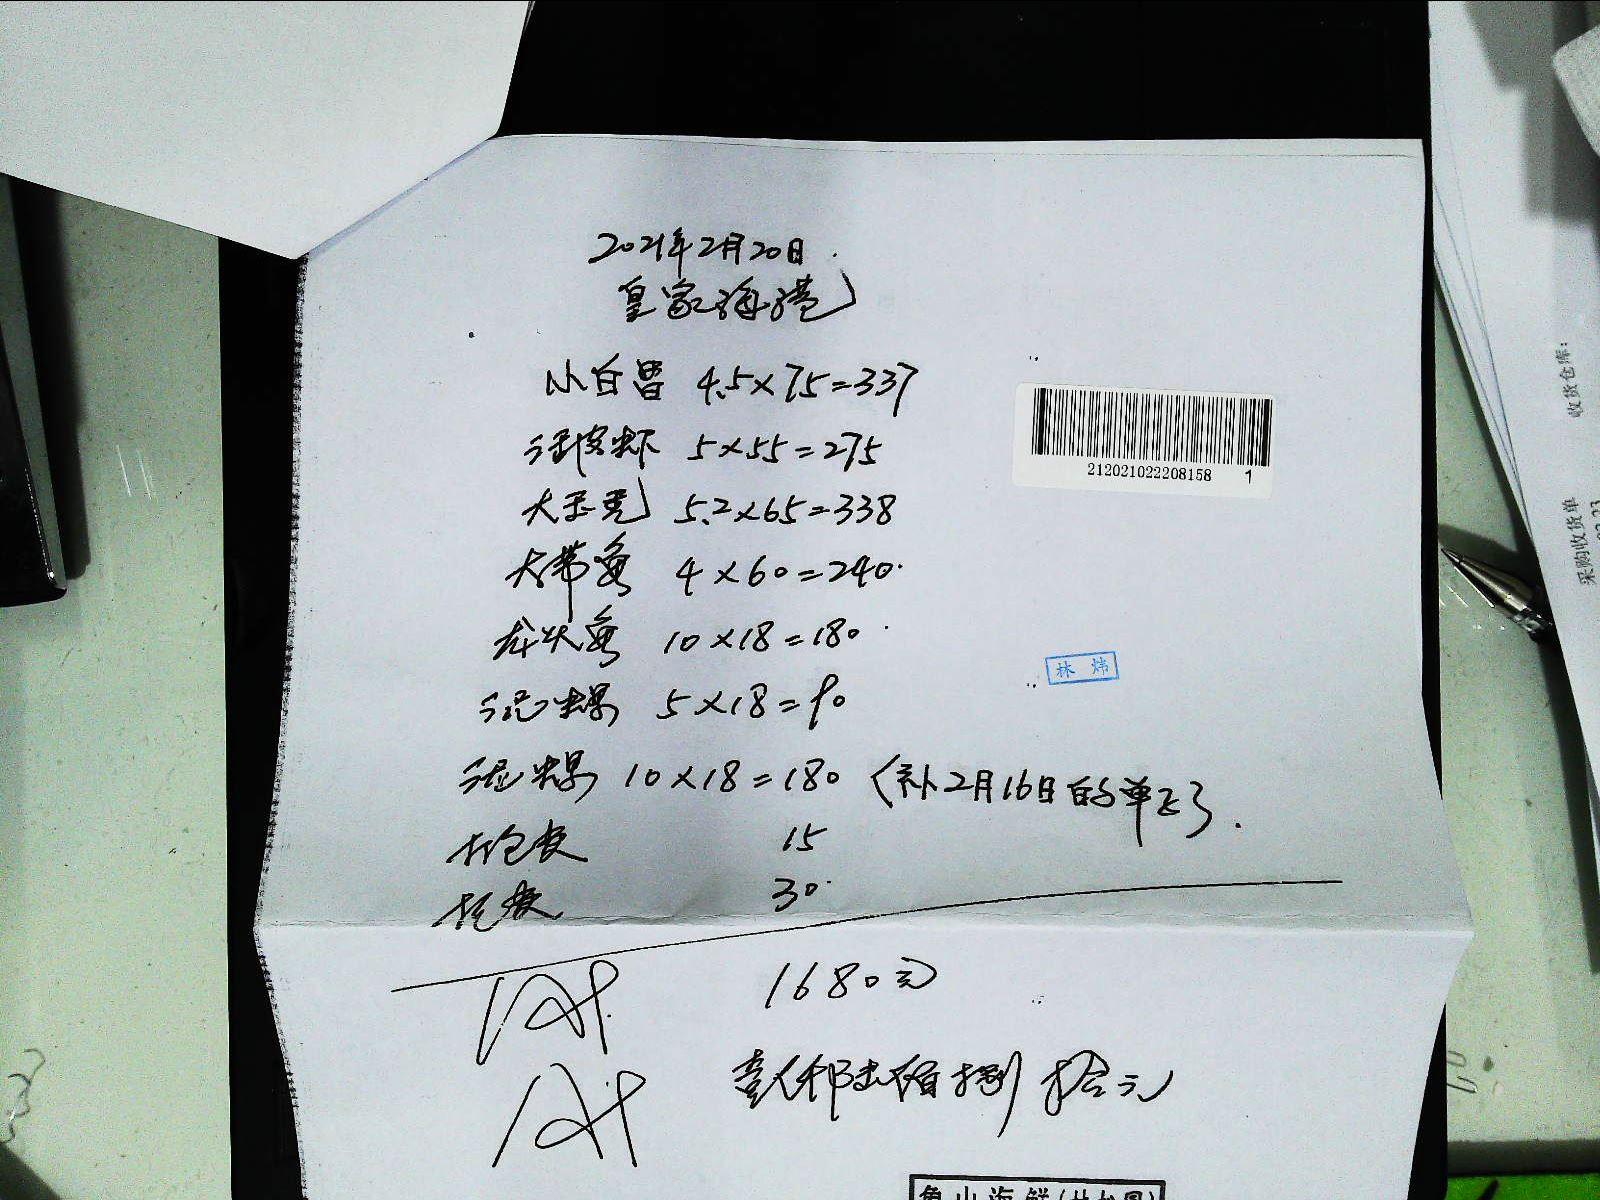 2021年2月20日
皇家海港
小白曽 4.5×75=337
活皮虾 5×55=275
大玉秃 5.2×65=338
大带鱼 4×60=240
龙头鱼 10×18=180
泥螺 5×18=90
泥螺 10×18=180 (补2月16日的单子)
15
30
1680元
拾元
212021022208158 1
林炜
收货仓库:
采购收货单